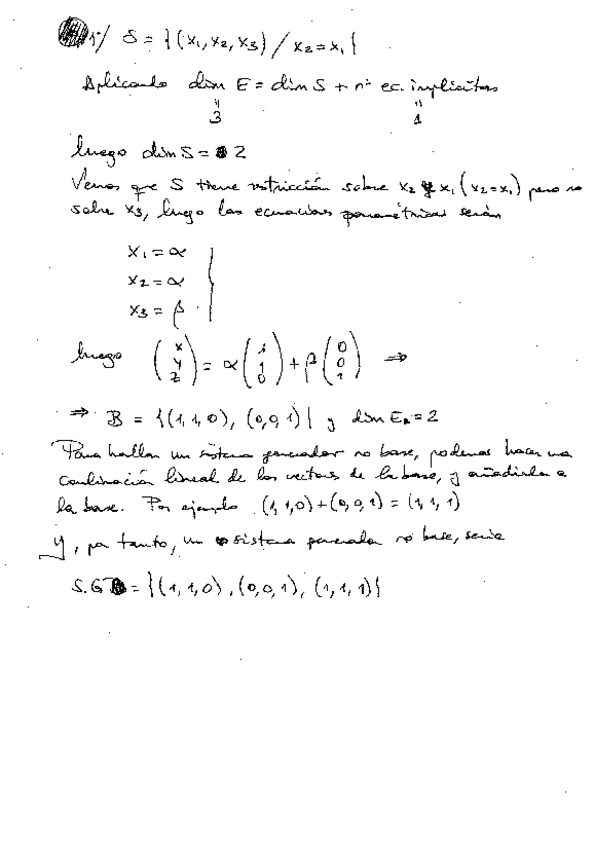 1º/ S = {(x₁, x₂, x₃) / x₂ = x₁}
Aplicando dim E = dim S + nº ec. implícitas
" "
3 1
luego dim S = 2
Vemos que S tiene restricción sobre x₂ y x₁ (x₂ = x₁) pero no
sobre x₃, luego las ecuaciones paramétricas serán
x₁ = α
x₂ = α
x₃ = β
luego (x y z) = α (1 1 0) + β (0 0 1) ⇒
⇒ B = {(1, 1, 0), (0, 0, 1)} y dim = 2
Para hallar un sistema generador no base, podemos hacer una
combinación lineal de los vectores de la base, y añadirla a
la base. Por ejemplo (1, 1, 0) + (0, 0, 1) = (1, 1, 1)
Y, por tanto, un sistema generador no base, sería
S.G = {(1, 1, 0), (0, 0, 1), (1, 1, 1)}